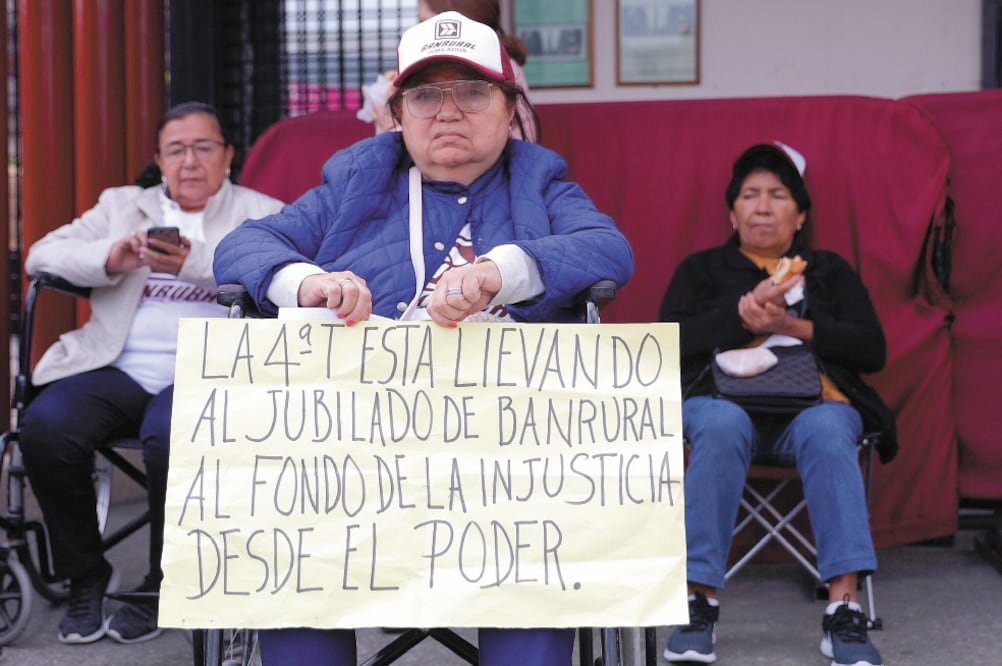 BANRURAL
JUBILADOS
BANRURAL
LA 4ª T ESTA LLEVANDO
AL JUBILADO DE BANRURAL
AL FONDO DE LA INJUSTICIA
DESDE EL PODER.